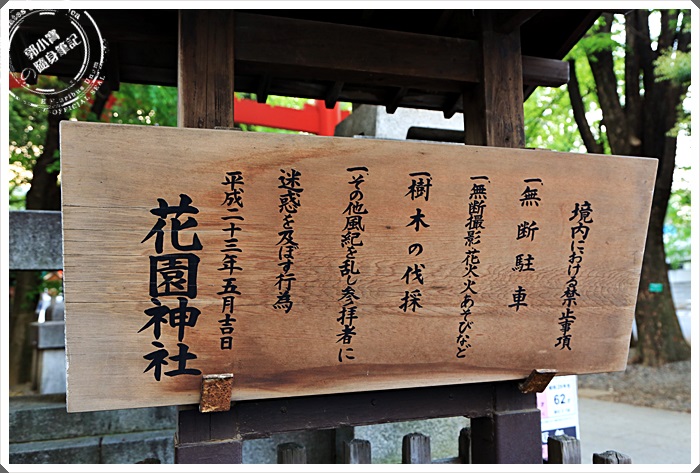 境内における禁止事項
一無断駐車
一無断撮影・花火・火あそびなど
一樹木の伐採
一その他風紀を乱し参拝者に
迷惑を及ぼす行為
平成二十三年五月吉日
花園神社
郭小寶
の隨身筆記
62